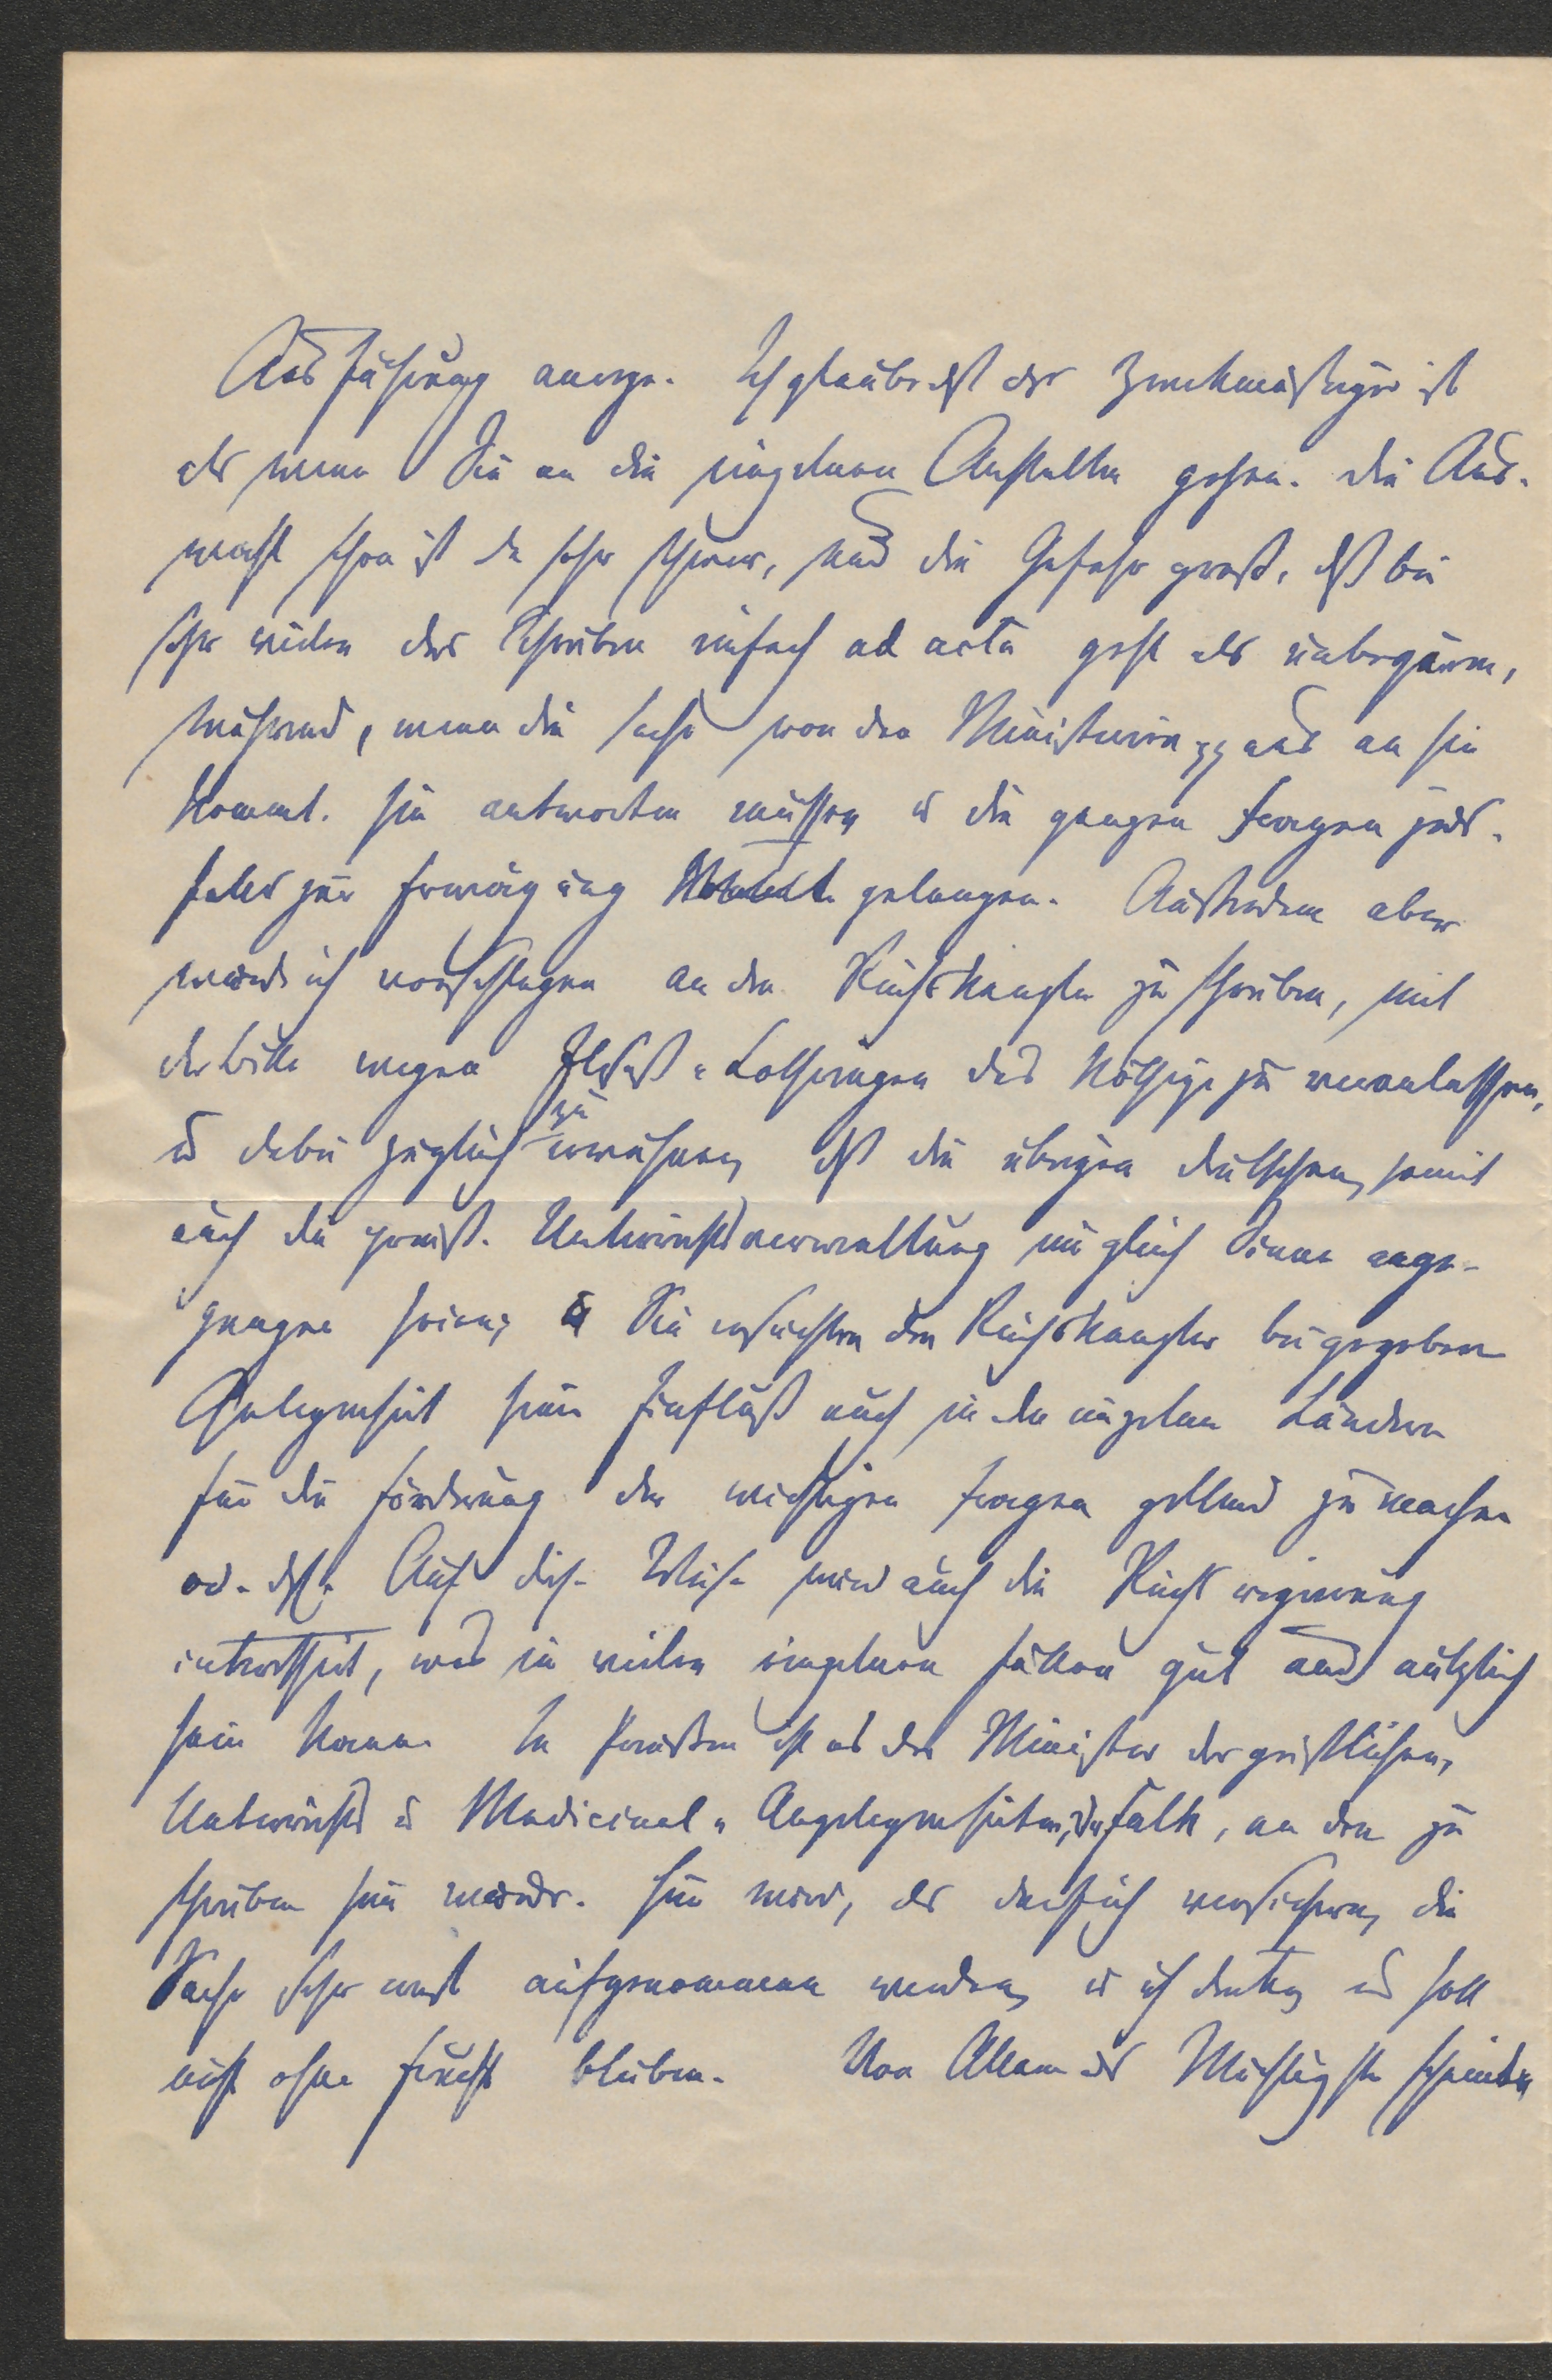 Ausführung anrege. Ich glaube dß das zweckmäßiger ist
als wenn Sie an die einzelnen Anstalten gehen. Die Aus-
wahl schon ist da sehr schwer, und die Gefahr groß, dß bei
sehr vielen das Schreiben einfach ad acta geht als unbequem,
während, wenn die Sache von den Ministerien aus an sie
kommt, sie antworten müssen u die ganzen Fragen jeden-
falls zur Erwägung gelangen. Außerdem aber
würde ich vorschlagen an den Reichskanzler zu schreiben, mit
der Bitte wegen Elsaß-Lothringen das Nöthige zu veranlassen,
u dabei zugleich zu erwähnen, dß die übrigen deutschen, somit
auch die preuß. Unterrichtsverwaltung im gleichen Sinne ange-
gangen seien, Sie ersuchten den Reichskanzler bei gegebener
Gelegenheit seinen Einfluß auch in den einzelnen Ländern
für die Förderung der wichtigen Fragen geltend zu machen
od. dgl. Auf diese Weise wird auch die Reichsregierung
interessirt, was in vielen einzelnen Fällen gut und nützlich
sein kann. In Preußen ist es der Minister der geistlichen,
Unterrichts u Medicinal-Angelegenheiten, Dr Falk, an den zu
schreiben sein würde. Hier wird, das darf ich versichern, die
Sache sehr ernst aufgenommen werden, u ich denke, es soll
nicht ohne Frucht bleiben. Von Allem das Wichtigste scheint